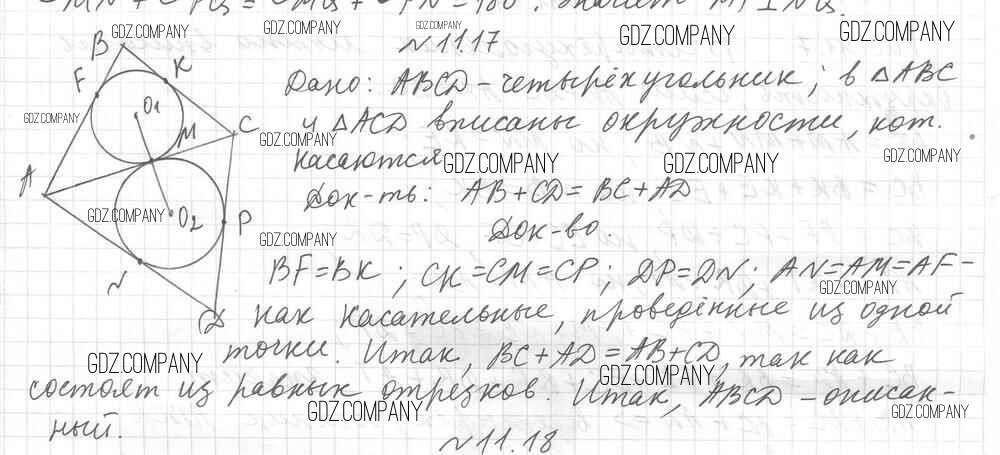 GDZ.COMPANY GDZ.COMPANY GDZ.COMPANY GDZ.COMPANY GDZ.COMPANY
N11.17
B F K O1 M C A O2 P N D
Дано: ABCD – четырёхугольник; в △ABC
и △ACD вписаны окружности, кот.
касаются
GDZ.COMPANY GDZ.COMPANY GDZ.COMPANY GDZ.COMPANY GDZ.COMPANY
Док-ть: AB+CD=BC+AD
GDZ.COMPANY
Док-во.
GDZ.COMPANY
BF=BK; CK=CM=CP; DP=DN; AN=AM=AF –
GDZ.COMPANY
как касательные, проведённые из одной
точки. Итак, BC+AD=AB+CD, так как
GDZ.COMPANY GDZ.COMPANY
состоят из равных отрезков. Итак, ABCD – описан-
GDZ.COMPANY GDZ.COMPANY
ный.
N11.18